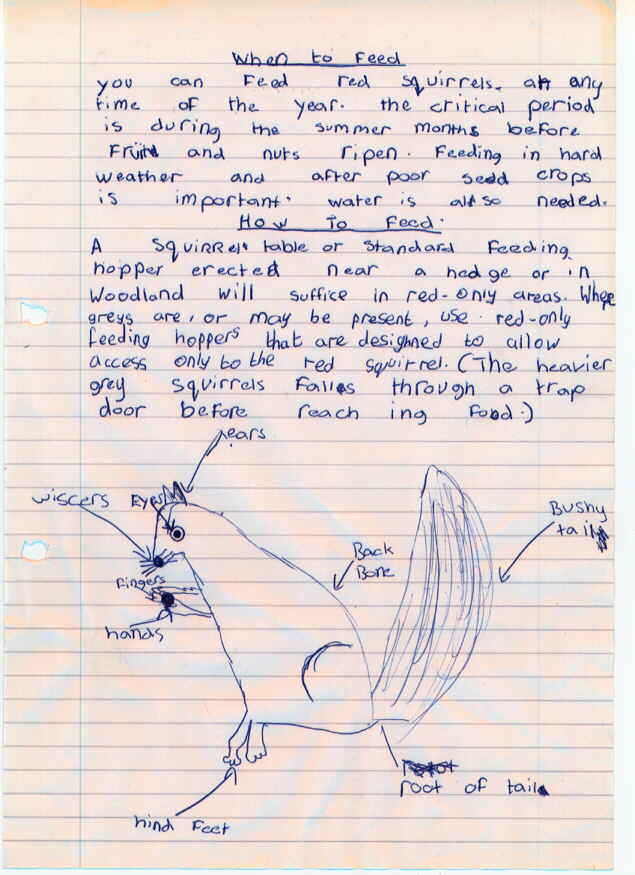 When to Feed
you can Feed red squirrels. at any
time of the year. the critical period
is during the summer months before
Fruit and nuts ripen. Feeding in hard
weather and after poor seed crops
is important. water is also needed.
How To Feed.
A squirrel table or standard Feeding
hopper erected near a hedge or in
Woodland will suffice in red-only areas. Where
greys are, or may be present, use red-only
feeding hoppers that are designed to allow
access only to the red squirrel. (The heavier
grey squirrels Falls through a trap
door before reach ing food.)
ears
wiscers
Eyes
Bushy
tail
Back
Bone
Fingers
hands
root of tail
hind Feet